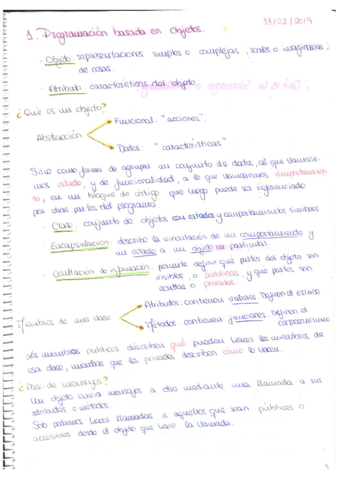 11/02/2019
1. Programación basada en Objetos.
· Objeto: representaciones simples o complejas, reales o imaginarias
de cosas.
· Atributo: características del objeto
¿Qué es un objeto?
Funcional: "acciones".
Abstracción
Datos: "características"
Sirve como forma de agrupar un conjunto de datos, al que llamaremos
estado, y de funcionalidad, a lo que llamaremos comportamiento,
en un bloque de código que luego puede ser referenciado
por otras partes del programa
· Clase: conjunto de objetos con estados y comportamientos similares
· Encapsulación: describe la vinculación de un comportamiento y
un estado a un objeto en particular.
· Ocultación de información: permite definir qué partes del objeto son
visibles, o públicas, y qué partes son
ocultas o privadas
Atributos: contienen valores. Definen el estado
Miembros de una clase
Métodos: contienen funciones. Definen el
comportamiento
Los miembros públicos describen qué pueden hacer los miembros de
esa clase, mientras que los privados describen cómo lo hacen.
¿Paso de mensajes?
Un objeto envía mensajes a otro mediante una llamada a sus
atributos o métodos
Solo podremos hacer llamadas a aquellos que sean públicos o
accesibles desde el objeto que hace la llamada.